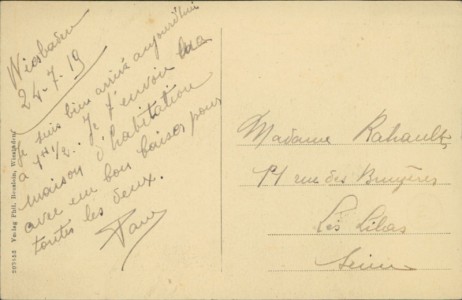 Wiesbaden
24-7-19
Je suis bien arrivé aujourd'hui
à 1H 1/2.. Je t'envoie la
maison d'habitation
avec un bon baiser pour
toutes les deux.
Madame Rahault
rue des Bruyères
Les Lilas
Seine
Verlag Phil. Wiesbaden